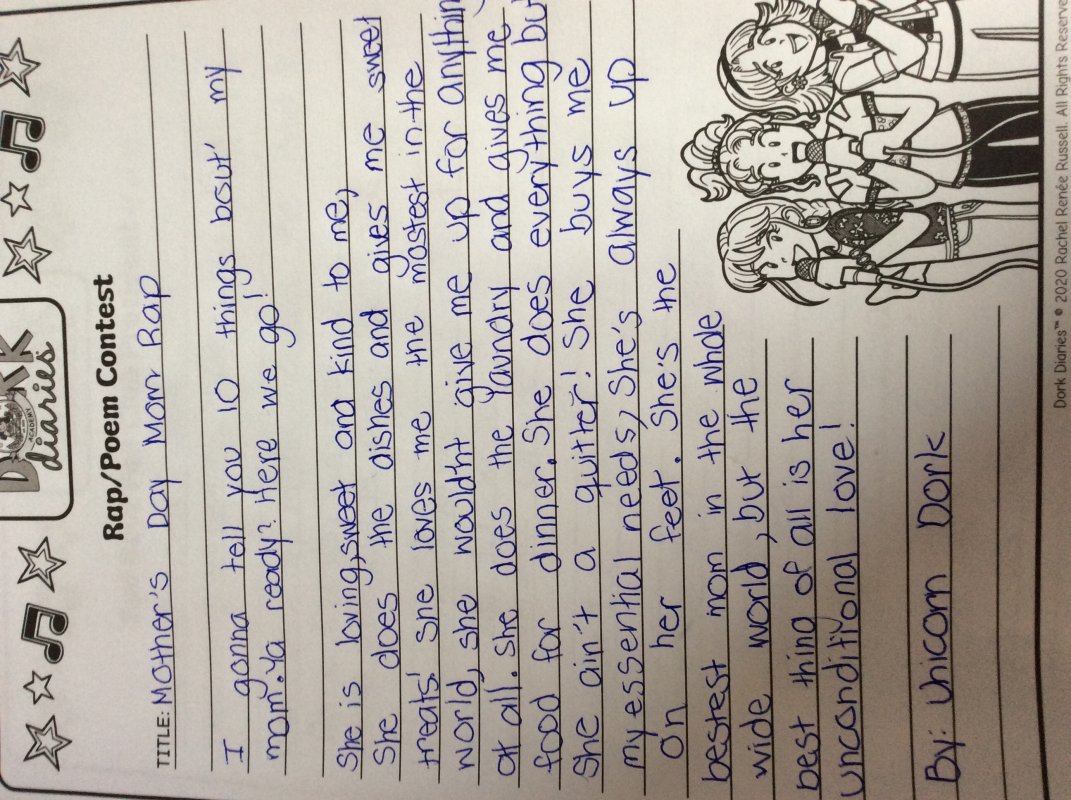 DORK
diaries
ACADEMY
Rap/Poem Contest
TITLE: Mother's Day Mom Rap
I gonna tell you 10 things bout' my
mom. Ya ready? Here we go!
She is loving, sweet and kind to me,
She does the dishes and gives me sweet
treats! She loves me the mostest in the
world, she wouldn't give me up for anything
at all. She does the laundry and gives me
food for dinner. She does everything bu
She ain't a quitter! She buys me
my essential needs, She's always up
on her feet. She's the
bestest mom in the whole
wide world, but the
best thing of all is her
unconditional love!
By: Unicorn Dork
Dork Diaries™ © 2020 Rachel Renée Russell. All Rights Reserve